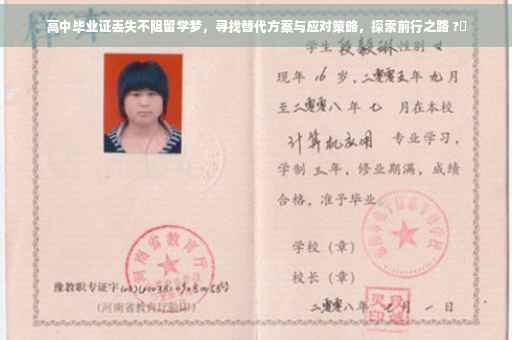 高中毕业证丢失不阻留学梦，寻找替代方案与应对策略，探索前行之路 ?
样本
学生 段毅琳 性别 女
现年 16 岁，二零零五年 九月
至二零零八年 七 月在本校
计算机应用 专业学习，
学制 三年，修业期满，成绩
合格，准予毕业。
学校（章）
校长（章）
二零零八年 七 月 一 日
河南省教育厅
豫教职专证字
（河南省教育厅验印）